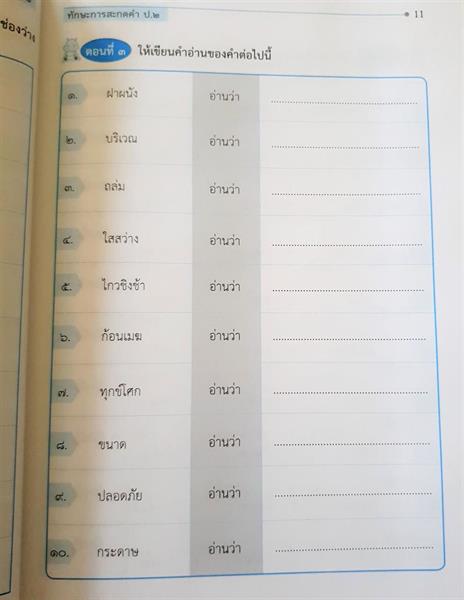 ช่องว่าง
ทักษะการสะกดคำ ป.๒ 11
ตอนที่ ๓ ให้เขียนคำอ่านของคำต่อไปนี้
๑. ฝาผนัง อ่านว่า ........................................
๒. บริเวณ อ่านว่า ........................................
๓. ถล่ม อ่านว่า ........................................
๔. ใสสว่าง อ่านว่า ........................................
๕. ไกวชิงช้า อ่านว่า ........................................
๖. ก้อนเมฆ อ่านว่า ........................................
๗. ทุกข์โศก อ่านว่า ........................................
๘. ขนาด อ่านว่า ........................................
๙. ปลอดภัย อ่านว่า ........................................
๑๐. กระดาษ อ่านว่า ........................................